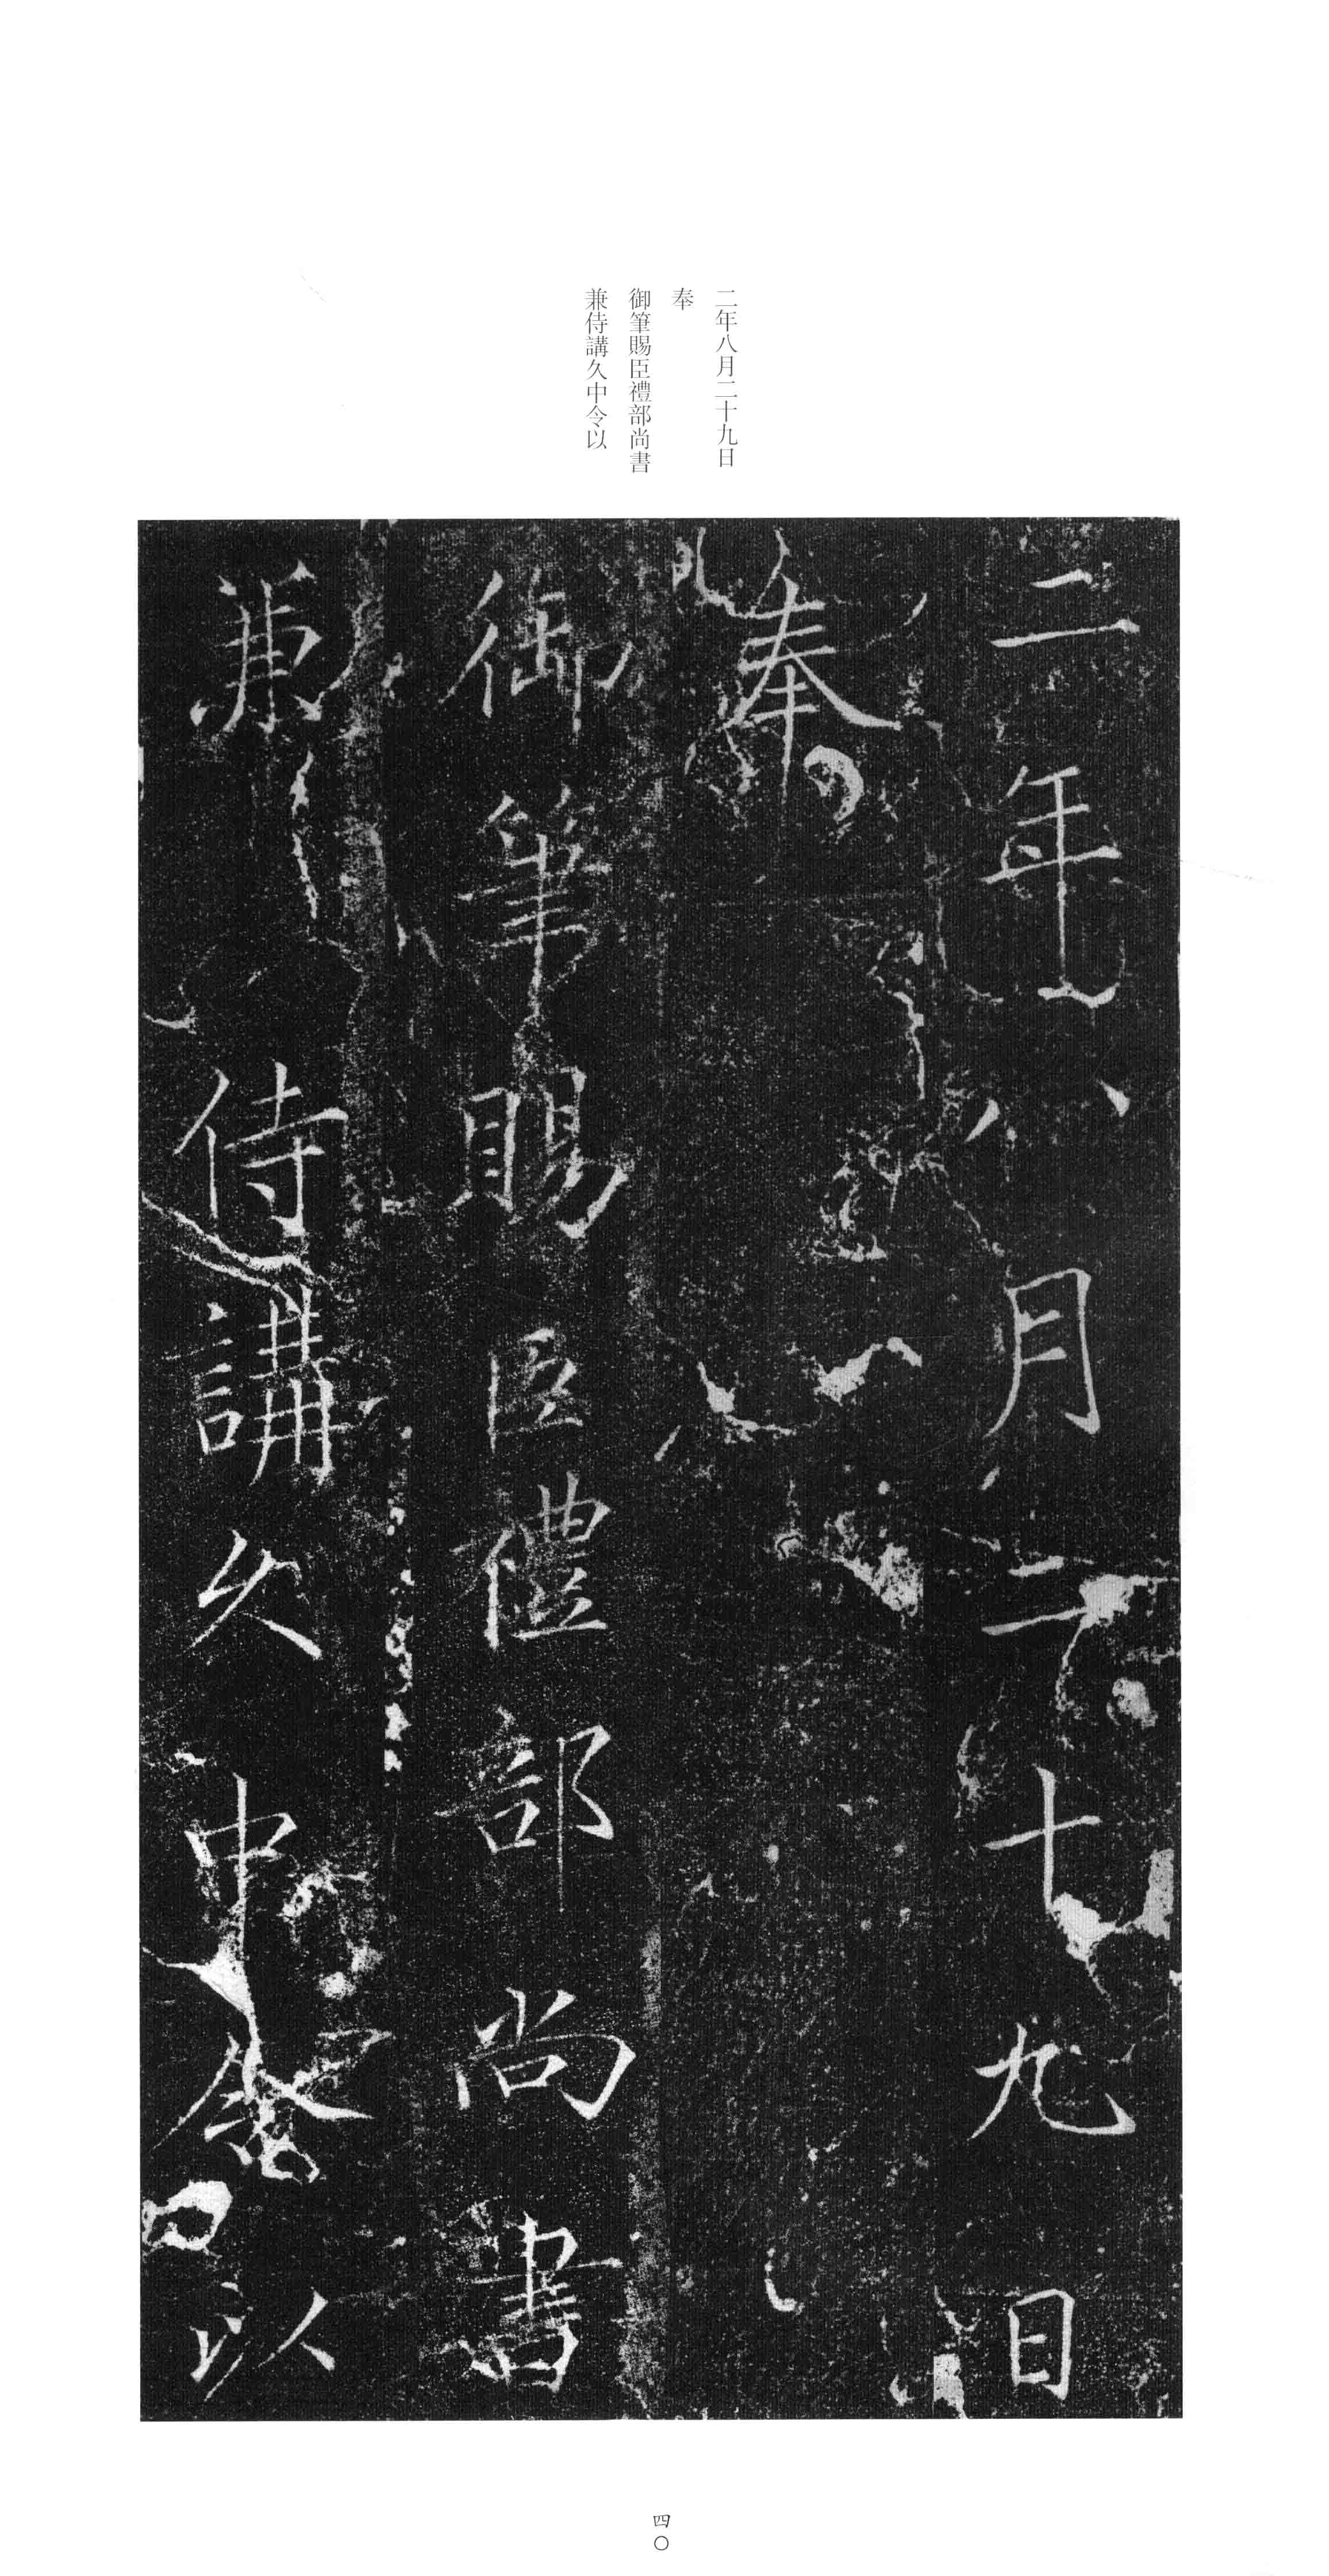 二年八月二十九日
奉
御筆賜臣禮部尚書
兼侍講久中令以
二年八月二十九日
奉
御筆賜臣禮部尚書
兼侍講久中令以
四〇